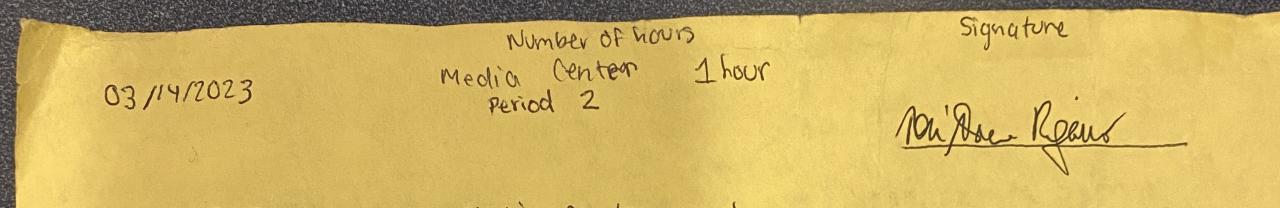 Number of hours
Signature
03/14/2023
Media Center 1 hour
Period 2